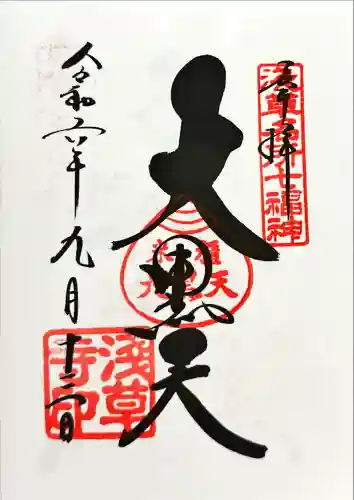 奉拝
浅草名所七福神
大黒天
浅草寺印
令和六年九月十二日